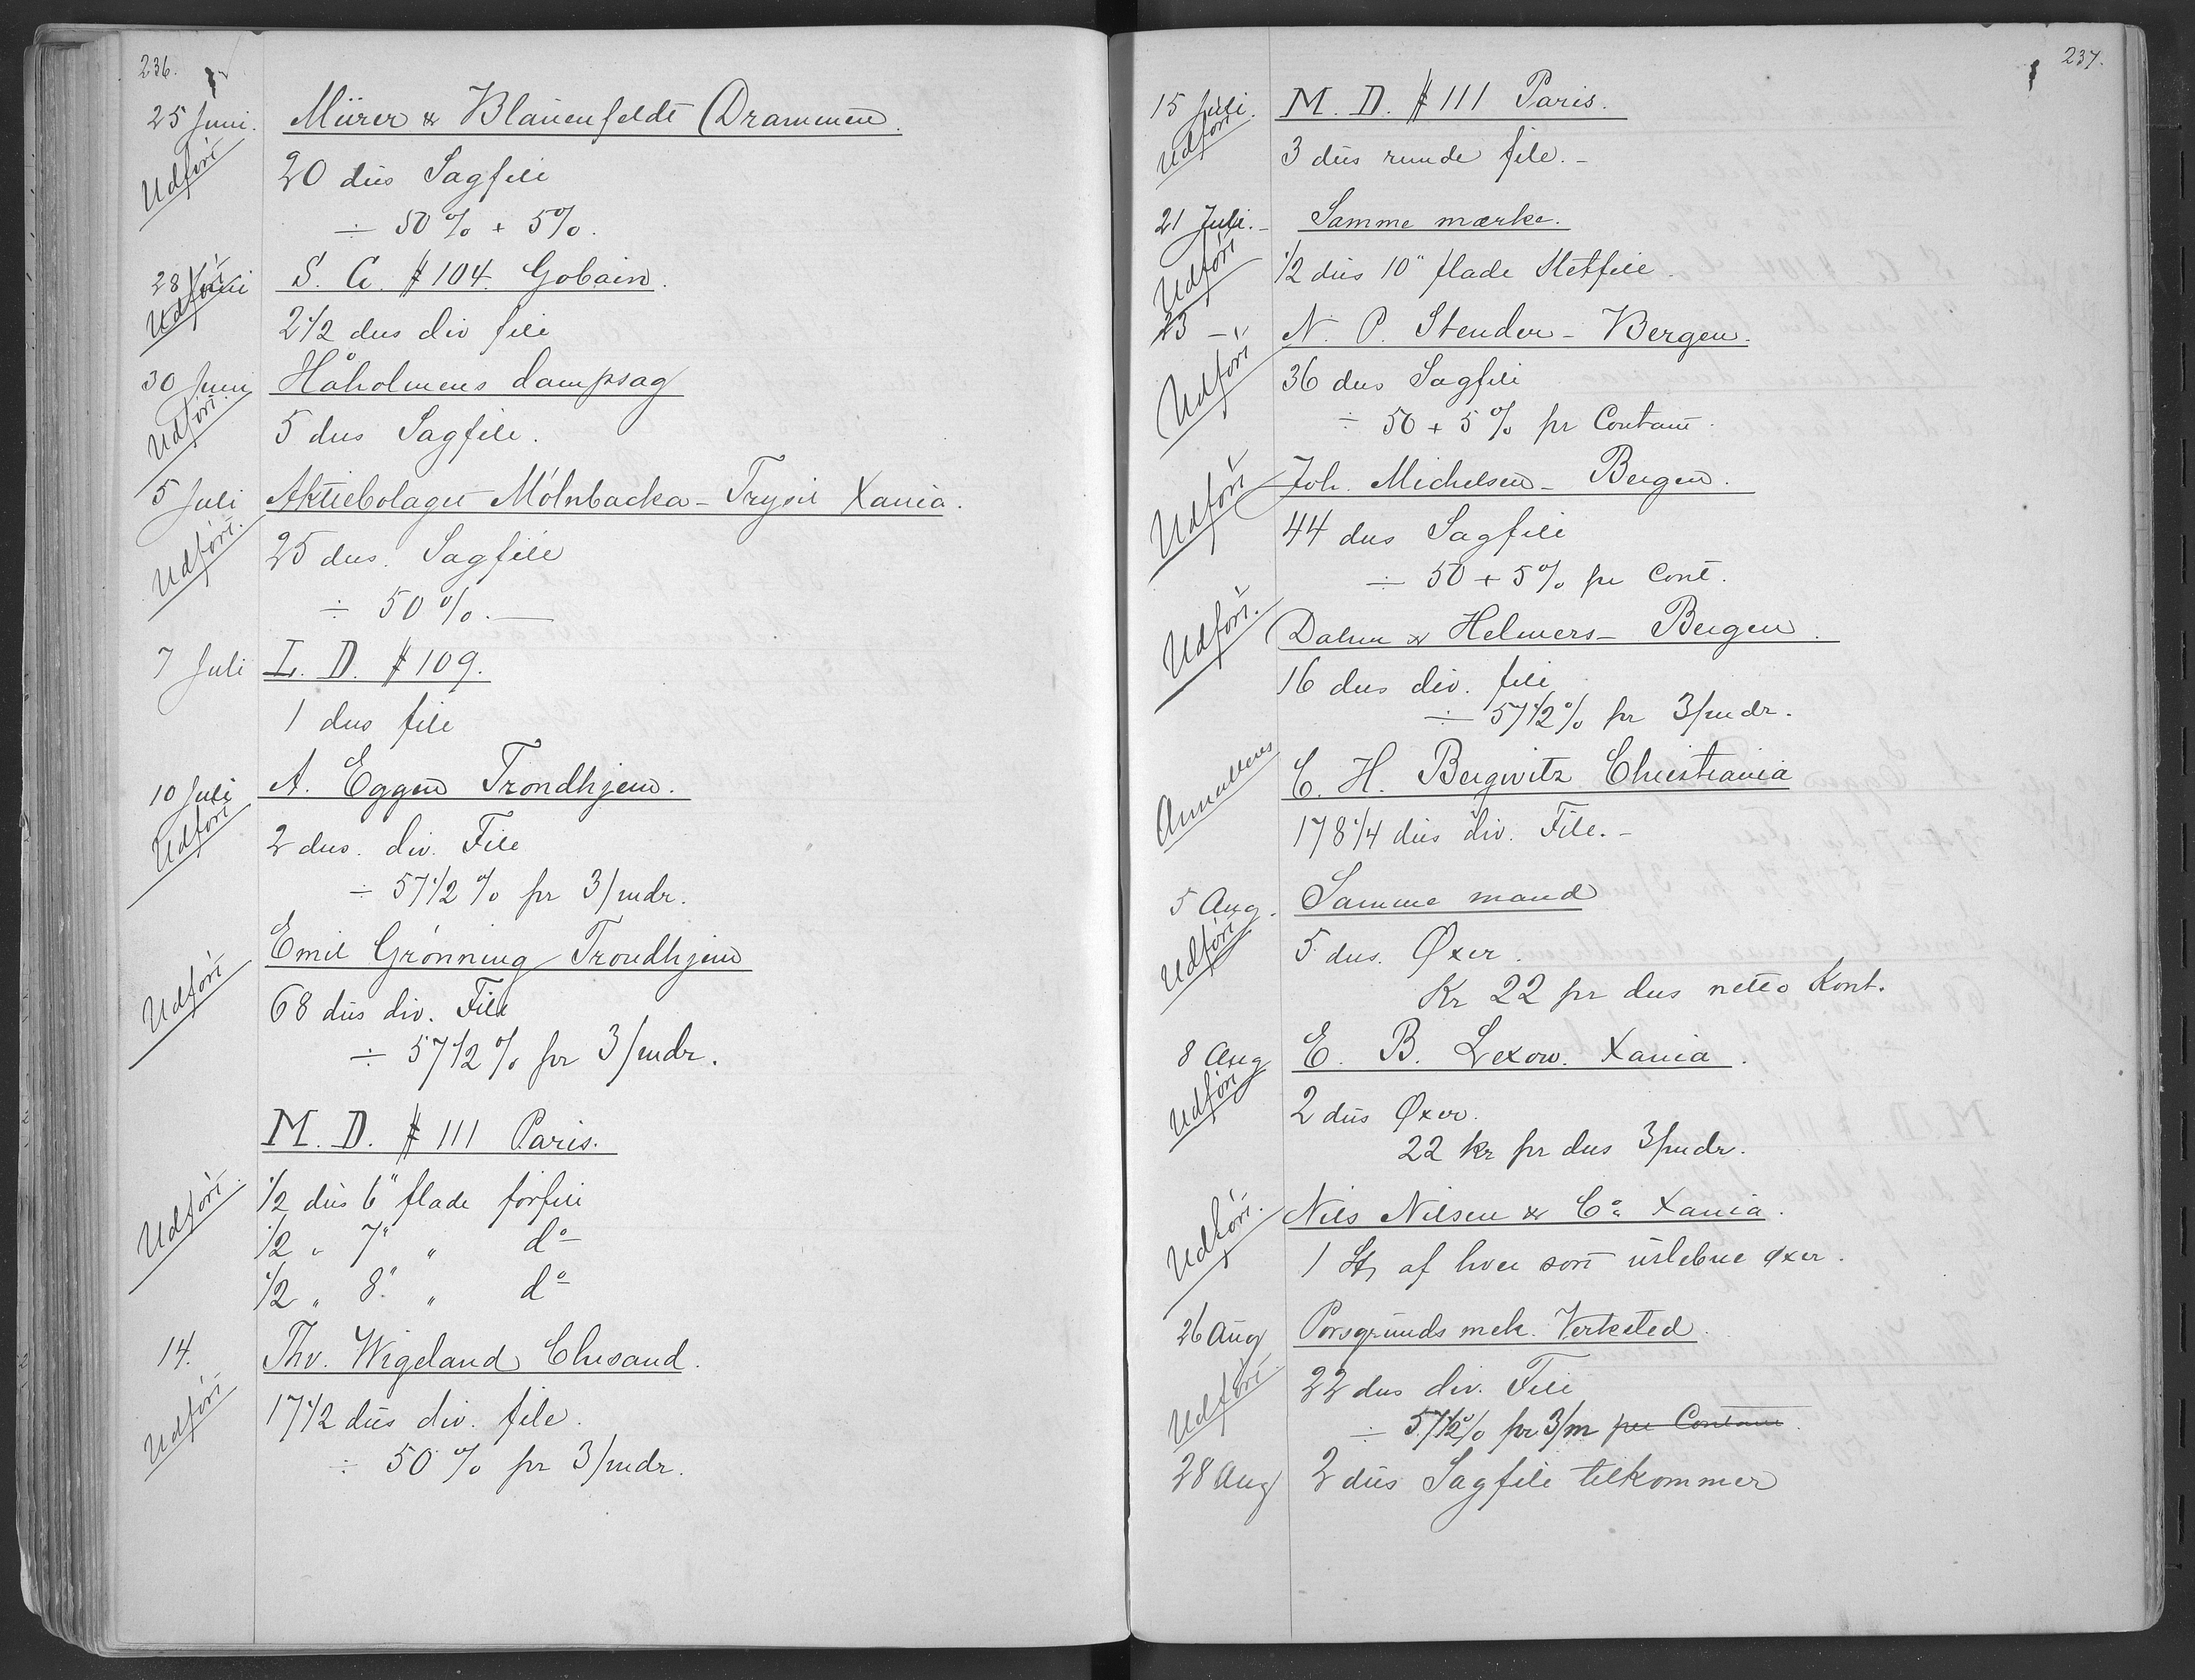 236.
25 Juni. Mürer & Blauenfeldt Drammen.
Udført
20 dus Sagfile
÷ 50 % + 5 %.
28 Juni S. G. # 104 Gobain.
Udført
2 1/2 dus div file
30 Juni Håholmens dampsag
Udført.
5 dus Sagfile.
5 Juli Aktiebolaget Mölnbacka - Trysil Xania.
Udført.
25 dus. Sagfile
÷ 50 %.
7 Juli L. D. # 109.
1 dus file
10 Juli A. Eggen Trondhjem.
Udført
2 dus. div. File
÷ 57 1/2 % pr 3/mdr.
Emil Grønning Trondhjem
Udført
68 dus div. File
÷ 57 1/2 % pr 3/mdr.
M. D. # 111 Paris.
Udført.
1/2 dus 6" flade forfile
1/2 " 7" " do
1/2 " 8" " do
14. Thv. Wigeland Chrsand.
Udført
17 1/2 dus div. file.
÷ 50 % pr 3/mdr.
237.
15 Juli. M. D. # 111 Paris.
Udført
3 dus runde file. -
21 Juli. - Samme mærke.
Udført
1/2 dus 10" flade Sletfile.
23 - " N. P. Stender - Bergen.
Udført
36 dus Sagfile
÷ 50 + 5 % pr Contant.
Joh. Michelsen - Bergen.
Udført
44 dus Sagfile
÷ 50 + 5 % pr Cont.
Udført.
Dahm & Helmers - Bergen.
16 dus div. file
÷ 57 1/2 % pr 3/mdr.
Annulleres
C. H. Bergwitz Christiania
178 1/4 dus div. File. -
5 Aug. Samme mand
Udført
5 dus. Øxer.
Kr 22 pr dus netto Kont.
8 Aug E. B. Lexow. Xania.
Udført
2 dus Øxer.
22 kr pr dus 3/mdr.
Udført.
Nils Nilsen & Co Xania.
1 St af hver sort uslebne øxer.
26 Aug Porsgrunds mek. Verksted.
Udført
22 dus div. File
÷ 57 1/2 % pr 3/m per Contant.
28 Aug 2 dus Sagfile tilkommer